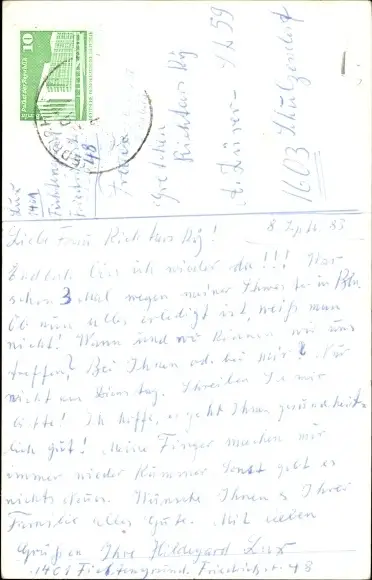 10
Lux
1401
Fichtengrund
Friedrichst.
48
Frau
Gretchen
Richtarsky
A. Dürer-
1603 Schulzendorf
8 Sept. 83
Liebe Frau Richtarsky!
Endlich bin ich wieder da!!! War
schon 3 mal wegen meiner Schwester in Bln
Ob nun alles erledigt ist, weiß man
nicht! Wann und wo können wir uns
treffen? Bei Ihnen oder bei mir? Nur
nicht am Dienstag. Schreiben Sie mir
bitte! Ich hoffe, es geht Ihnen gesundheit-
lich gut! Meine Finger machen mir
immer wieder Kummer Sonst gibt es
nichts Neues. Wünsche Ihnen & Ihrer
Familie alles Gute. Mit lieben
Grüßen Ihre Hildegard Lux
1401 Fichtengrund. Friedrichst. 48